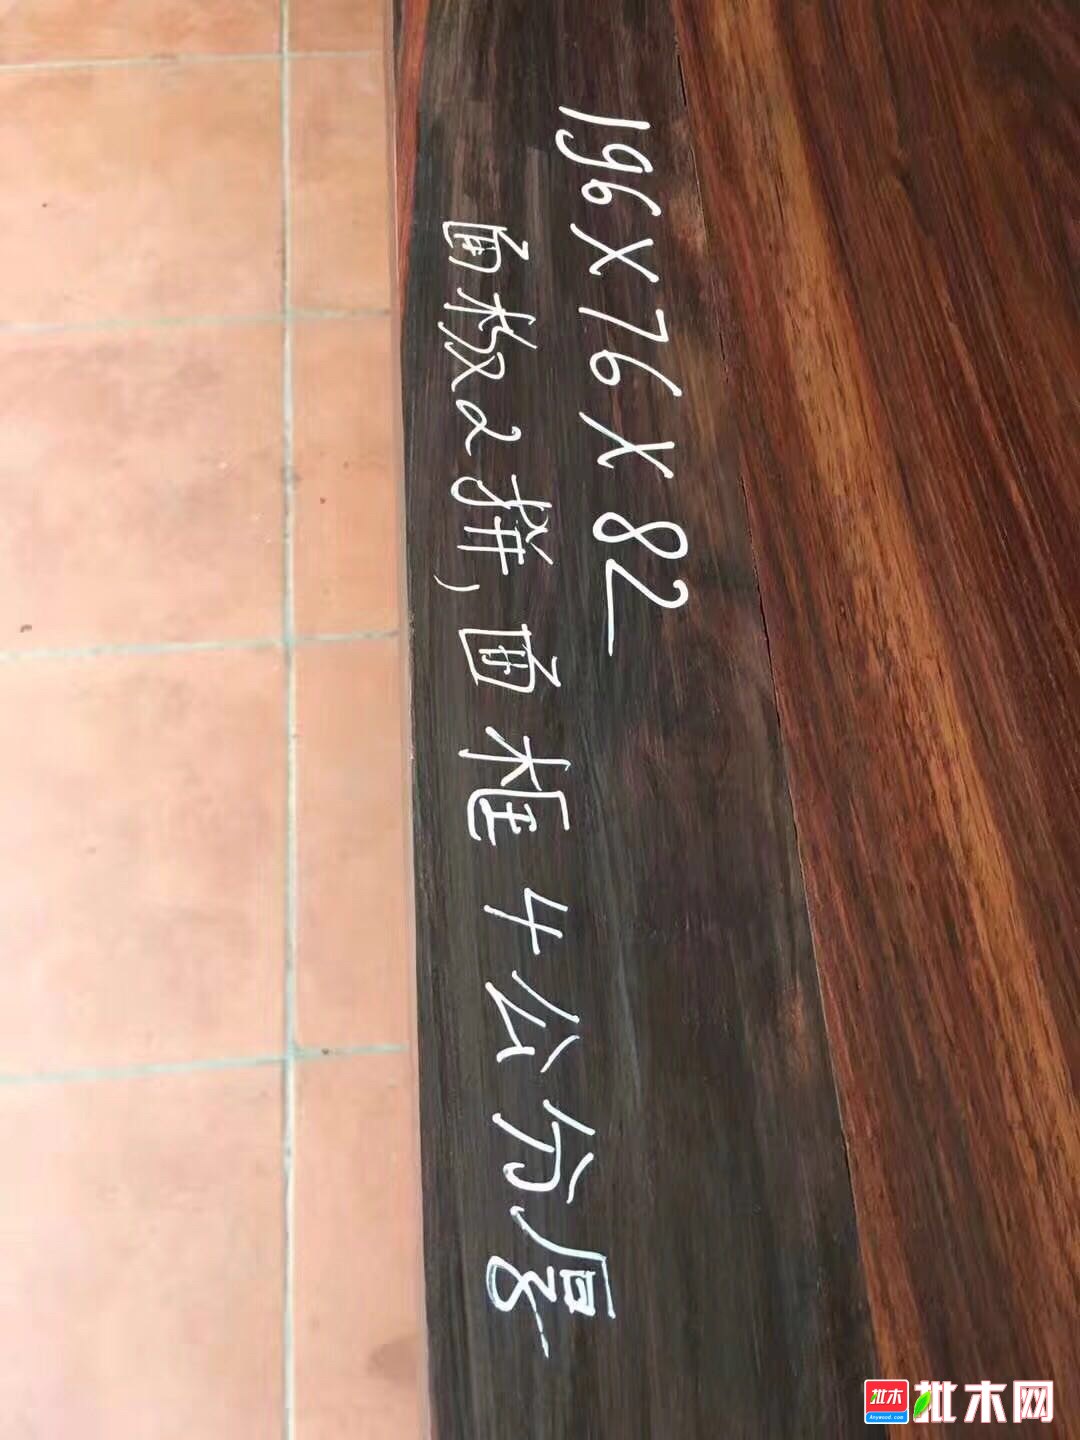 196X76X82
面板2拼,面框4公分厚
批木
Anywood.com
批木网